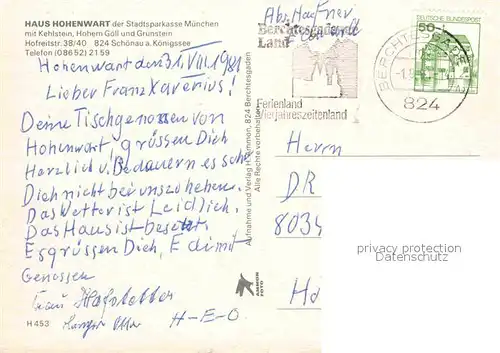 HAUS HOHENWART der Stadtsparkasse München
mit Kehlstein, Hohem Göll und Grunstein
Hofreitstr. 38/40 824 Schönau a. Königssee
Telefon (0 86 52) 21 59
Hohenwart den 31. VIII. 1981
Lieber Franz Xaverius!
Deine Tischgenossen von
Hohenwart, grüssen Dich
Herzlich u. Bedauern es sehr
Dich nicht bei uns zu haben.
Das Wetter ist Leidlich.
Das Haus ist besetzt.
Es grüssen Dich, E dimit
Genossen
Hofstetter
H-E-O
H 453
Aufnahme und Verlag H. Ammon, 824 Berchtesgaden
Alle Rechte vorbehalten
AMMON
FOTO
Abs.
Berchtesgadener
Land
Ferienland
Vierjahreszeitenland
BERCHTESGADEN
824
DEUTSCHE BUNDESPOST
50
Herrn
DR
8034
privacy protection
Datenschutz